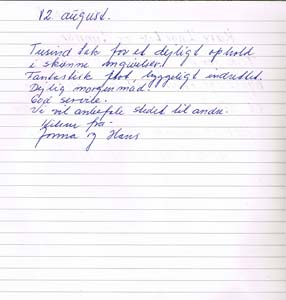 12. august.
Tusind tak for et dejligt ophold
i skønne omgivelser.
Fantastisk flot, hyggeligt indrettet.
Dejlig morgenmad.
God service.
Vi vil anbefale stedet til andre.
Hilsen fra
Jonna og Hans